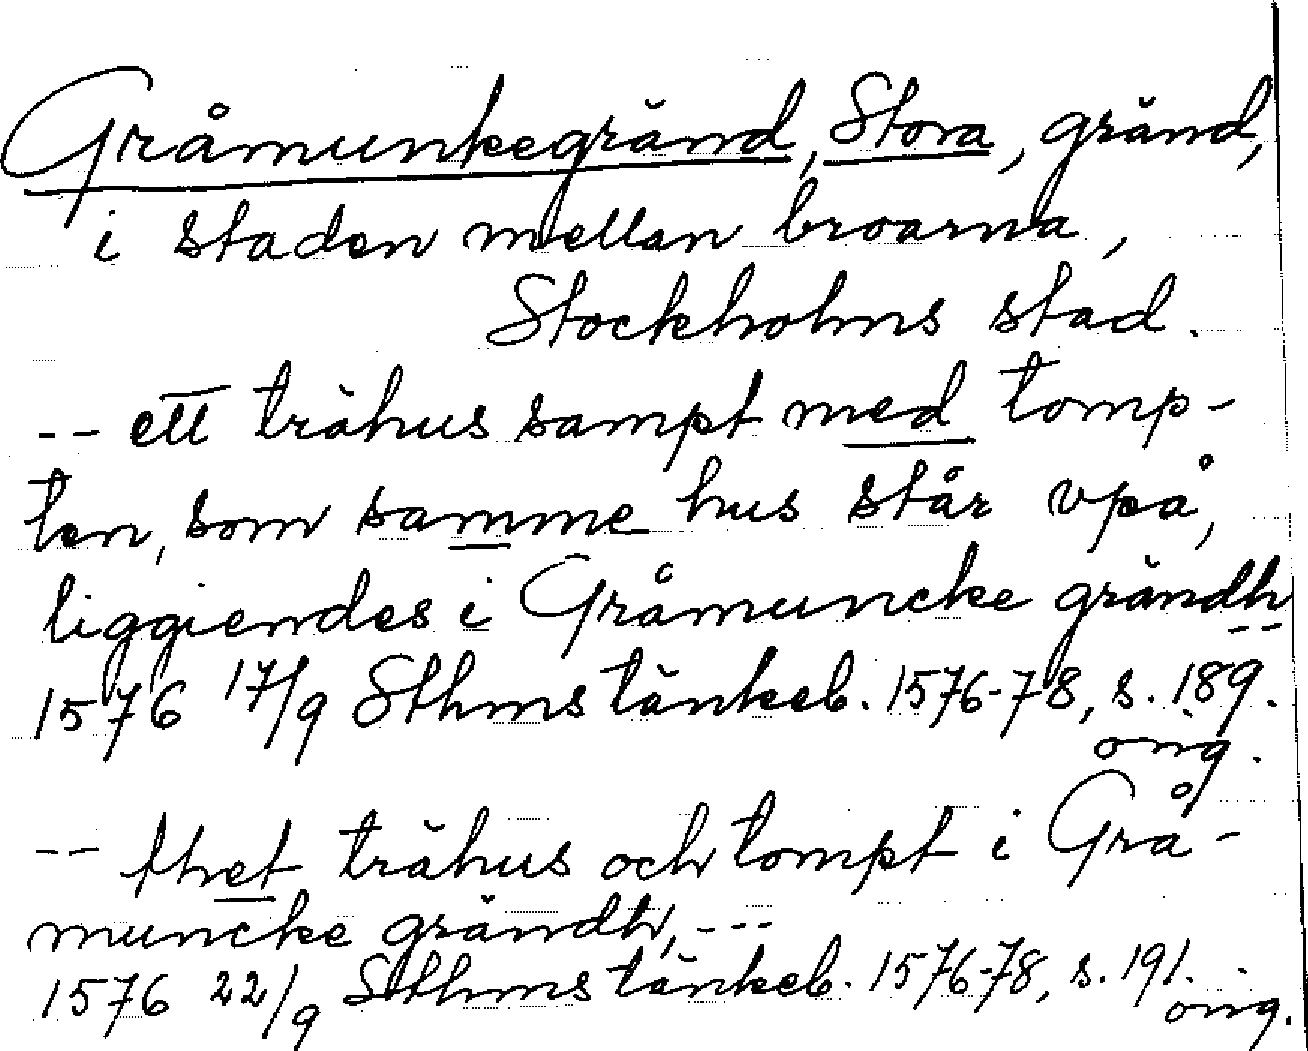 Gråmunkegränd, Stora, gränd,
i staden mellan broarna,
Stockholms stad.
-- ett trähus sampt med tomp-
ten, som samme hus står vpå,
liggiendes i Gråmuncke grändh
--
1576 17/9 Sthms tänkeb. 1576-78, s. 189.
orig.
-- thet trähus och tompt i Grå-
muncke grändh, ---
1576 22/9 Sthms tänkeb. 1576-78, s. 191.
orig.